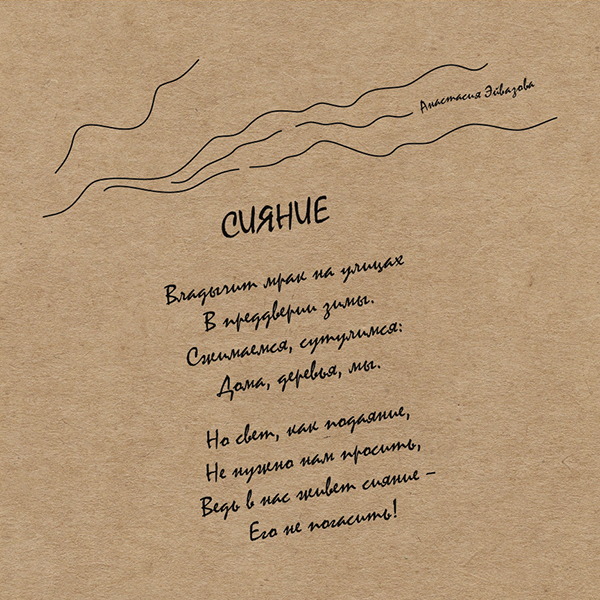 Анастасия Эйвазова
СИЯНИЕ
Владычит мрак на улицах
В преддверии зимы.
Сжимаемся, сутулимся:
Дома, деревья, мы.
Но свет, как подаяние,
Не нужно нам просить,
Ведь в нас живет сияние –
Его не погасить!